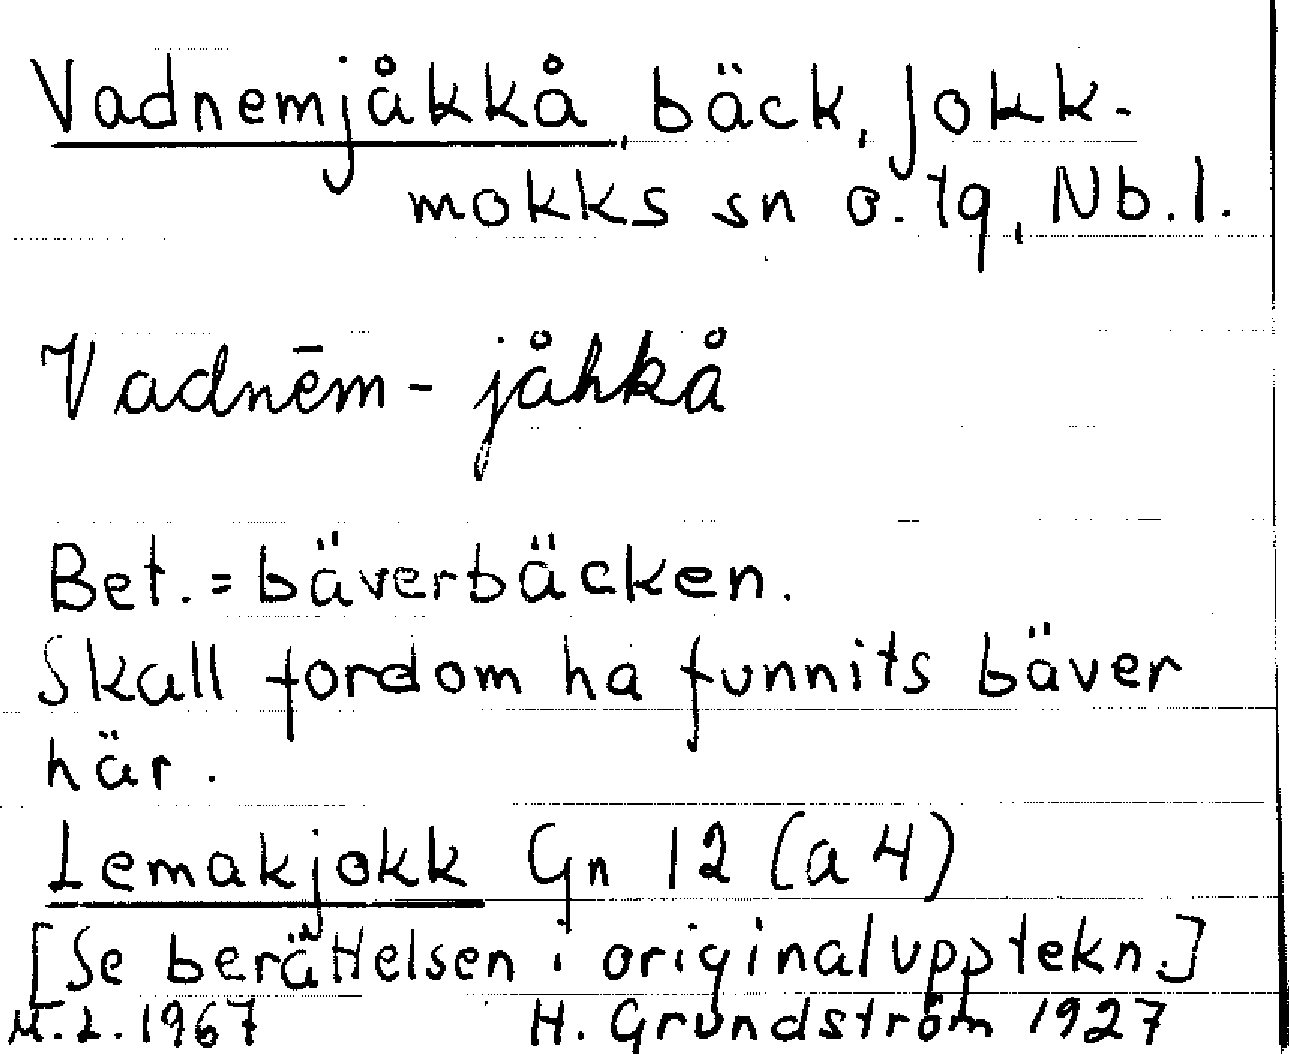 Vadnemjåkkå, bäck, Jokk-
mokks sn o. tg, Nb.l.
Vadnēm-jåhkå
Bet. = bäverbäcken.
Skall fordom ha funnits bäver
här.
Lemakjokk Gn 12 (a 4)
[Se berättelsen i originalupptekn.]
M.L. 1967 H. Grundström 1927